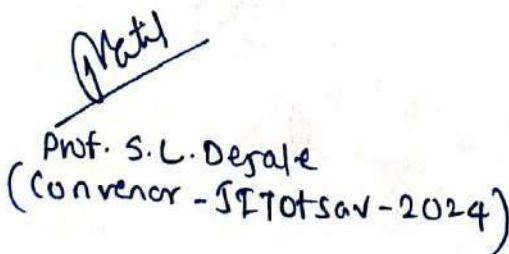 Prof. S.L. Desale
(Convenor - JITotsav - 2024)